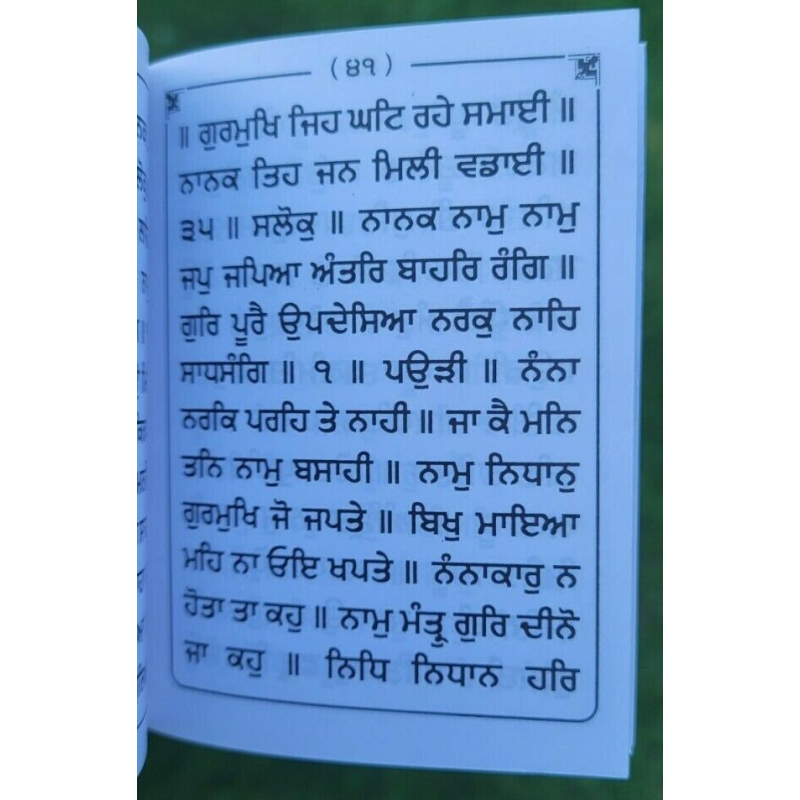 ( ੪੧ )
॥ ਗੁਰਮੁਖਿ ਜਿਹ ਘਟਿ ਰਹੇ ਸਮਾਈ ॥
ਨਾਨਕ ਤਿਹ ਜਨ ਮਿਲੀ ਵਡਾਈ ॥
੩੫ ॥ ਸਲੋਕੁ ॥ ਨਾਨਕ ਨਾਮੁ ਨਾਮੁ
ਜਪੁ ਜਪਿਆ ਅੰਤਰਿ ਬਾਹਰਿ ਰੰਗਿ ॥
ਗੁਰਿ ਪੂਰੈ ਉਪਦੇਸਿਆ ਨਰਕੁ ਨਾਹਿ
ਸਾਧਸੰਗਿ ॥ ੧ ॥ ਪਉੜੀ ॥ ਨੰਨਾ
ਨਰਕਿ ਪਰਹਿ ਤੇ ਨਾਹੀ ॥ ਜਾ ਕੈ ਮਨਿ
ਤਨਿ ਨਾਮੁ ਬਸਾਹੀ ॥ ਨਾਮੁ ਨਿਧਾਨੁ
ਗੁਰਮੁਖਿ ਜੋ ਜਪਤੇ ॥ ਬਿਖੁ ਮਾਇਆ
ਮਹਿ ਨਾ ਓਇ ਖਪਤੇ ॥ ਨੰਨਾਕਾਰੁ ਨ
ਹੋਤਾ ਤਾ ਕਹੁ ॥ ਨਾਮੁ ਮੰਤ੍ਰੁ ਗੁਰਿ ਦੀਨੋ
ਜਾ ਕਹੁ ॥ ਨਿਧਿ ਨਿਧਾਨ ਹਰਿ